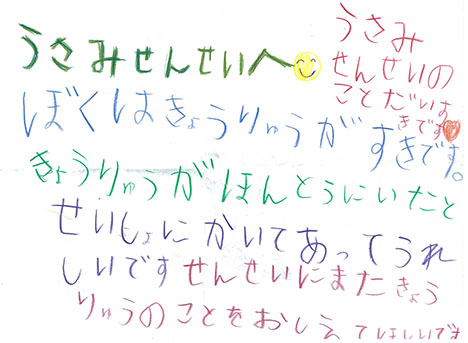 うさみせんせいへ
ぼくはきょうりゅうがすきです。
きょうりゅうがほんとうにいたと
せいしょにかいてあってうれ
しいですせんせいにまたきょう
りゅうのことをおしえてほしいです
うさみ
せんせいの
ことだいす
きです